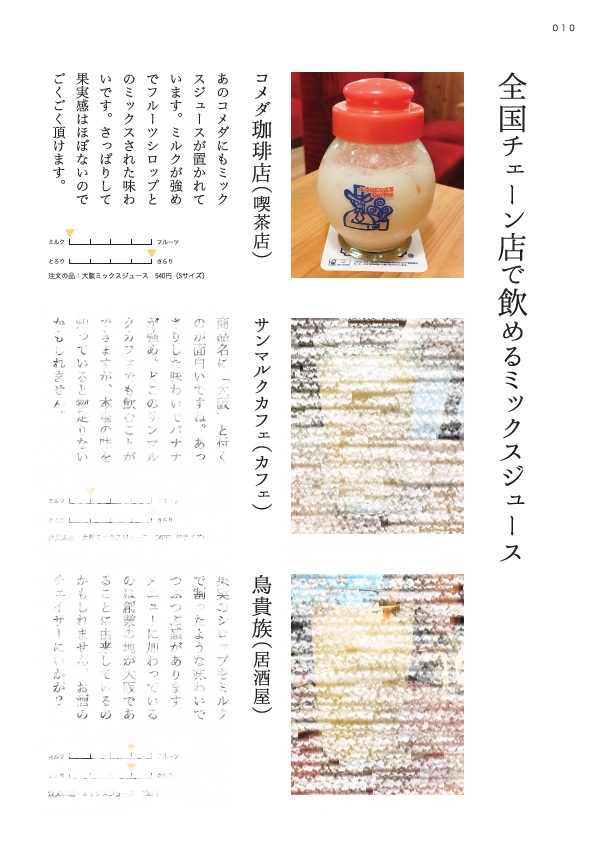 010
全国チェーン店で飲めるミックスジュース
コメダ珈琲店（喫茶店）
あのコメダにもミック
スジュースが置かれて
います。ミルクが強め
でフルーツシロップと
のミックスされた味わ
いです。さっぱりして
果実感はほぼないので
ごくごく頂けます。
ミルク フルーツ
とろり さらり
注文の品：大阪ミックスジュース 540円（Sサイズ）
サンマルクカフェ（カフェ）
商品名に「大阪」と付く
のが面白いですね。あっ
さりした味わいでバナナ
が強め。どこのサンマル
クカフェでも飲むことが
できますが、本場の味を
知っていると物足りない
かもしれません。
ミルク フルーツ
とろり さらり
注文の品：大阪ミックスジュース 540円（Sサイズ）
鳥貴族（居酒屋）
果実のシロップをミルク
で割ったような味わいで
つぶつぶ感があります。
メニューに加わっている
のは創業の地が大阪であ
ることに由来しているの
かもしれません。お酒の
チェイサーにいかが？
ミルク フルーツ
とろり さらり
注文の品：ミックスジュース